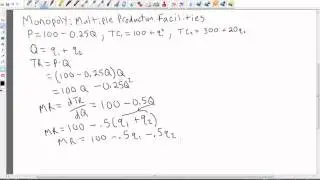 Monopoly: Multiple Production Facilities
P=100-0.25Q, TC₁=100+q₁², TC₂=300+20q₂
Q=q₁+q₂
TR=P·Q
=(100-0.25Q)Q
=100Q-0.25Q²
MR=dTR/dQ=100-0.5Q
MR=100-.5(q₁+q₂)
MR=100-.5q₁-.5q₂